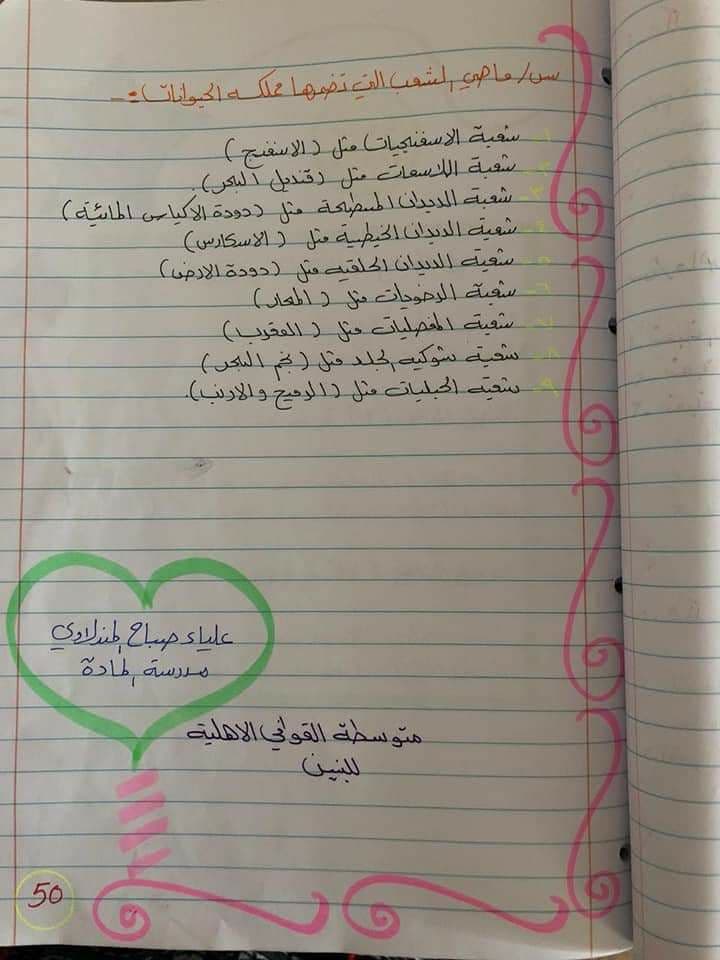 س/ ما هي الشعب التي تضمها مملكه الحيوانات :-
١- شعبة الاسفنجيات مثل (الاسفنج)
٢- شعبة اللاسعات مثل (قنديل البحر).
٣- شعبة الديدان المسطحة مثل (دودة الاكياس المائية)
٤- شعبة الديدان الخيطية مثل (الاسكارس)
٥- شعبة الديدان الحلقيه مثل (دودة الارض)
٦- شعبة الرخويات مثل (المحار)
٧- شعبة المفصليات مثل (العقرب)
٨- شعبة شوكيه الجلد مثل (نجم البحر)
٩- شعبة الحبليات مثل (الرميح والارنب).
علياء صباح المندلاوي
مدرسة المادة
متوسطة القوافي الاهلية
للبنين
50